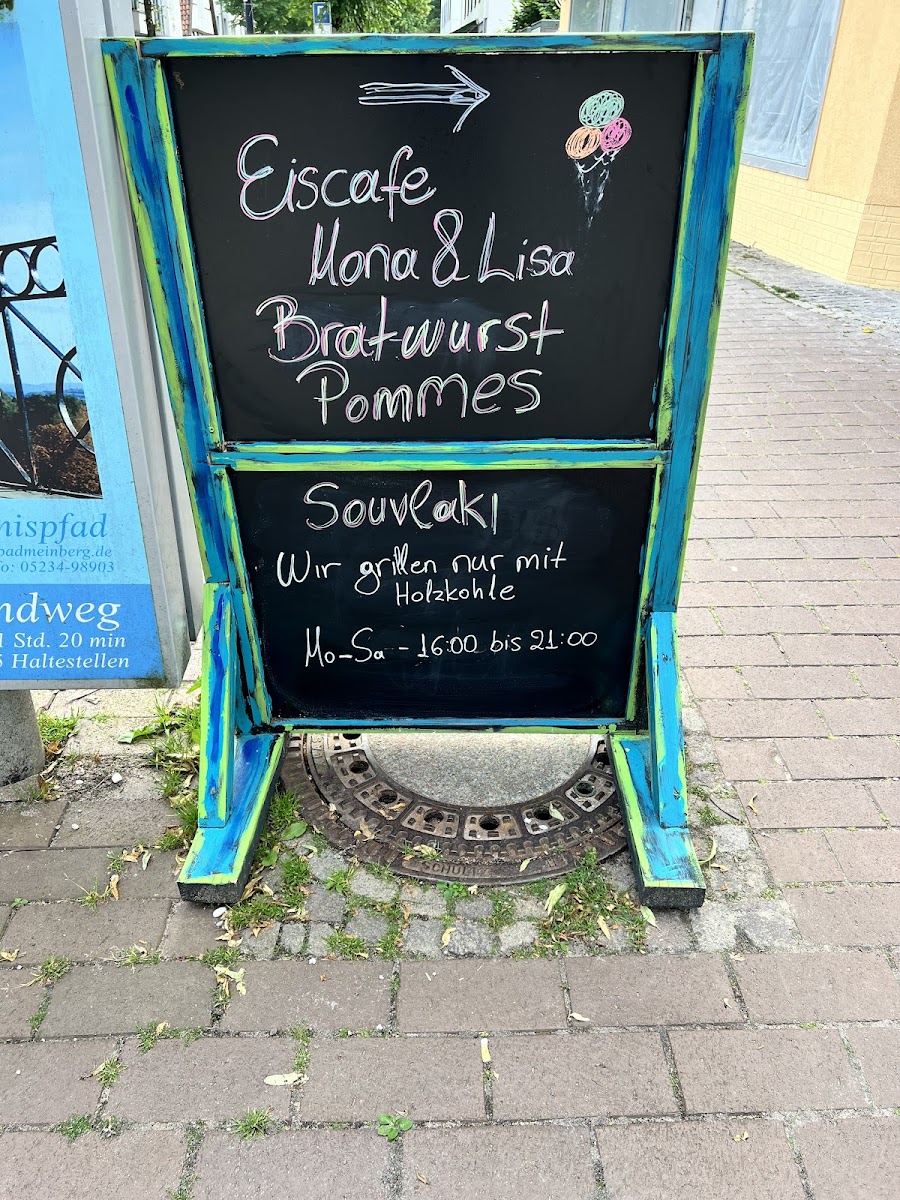 Eiscafe
Mona & Lisa
Bratwurst
Pommes
Souvlaki
Wir grillen nur mit
Holzkohle
Mo-Sa - 16:00 bis 21:00
nispfad
badmeinberg.de
fo: 05234-98903
ndweg
1 Std. 20 min
5 Haltestellen